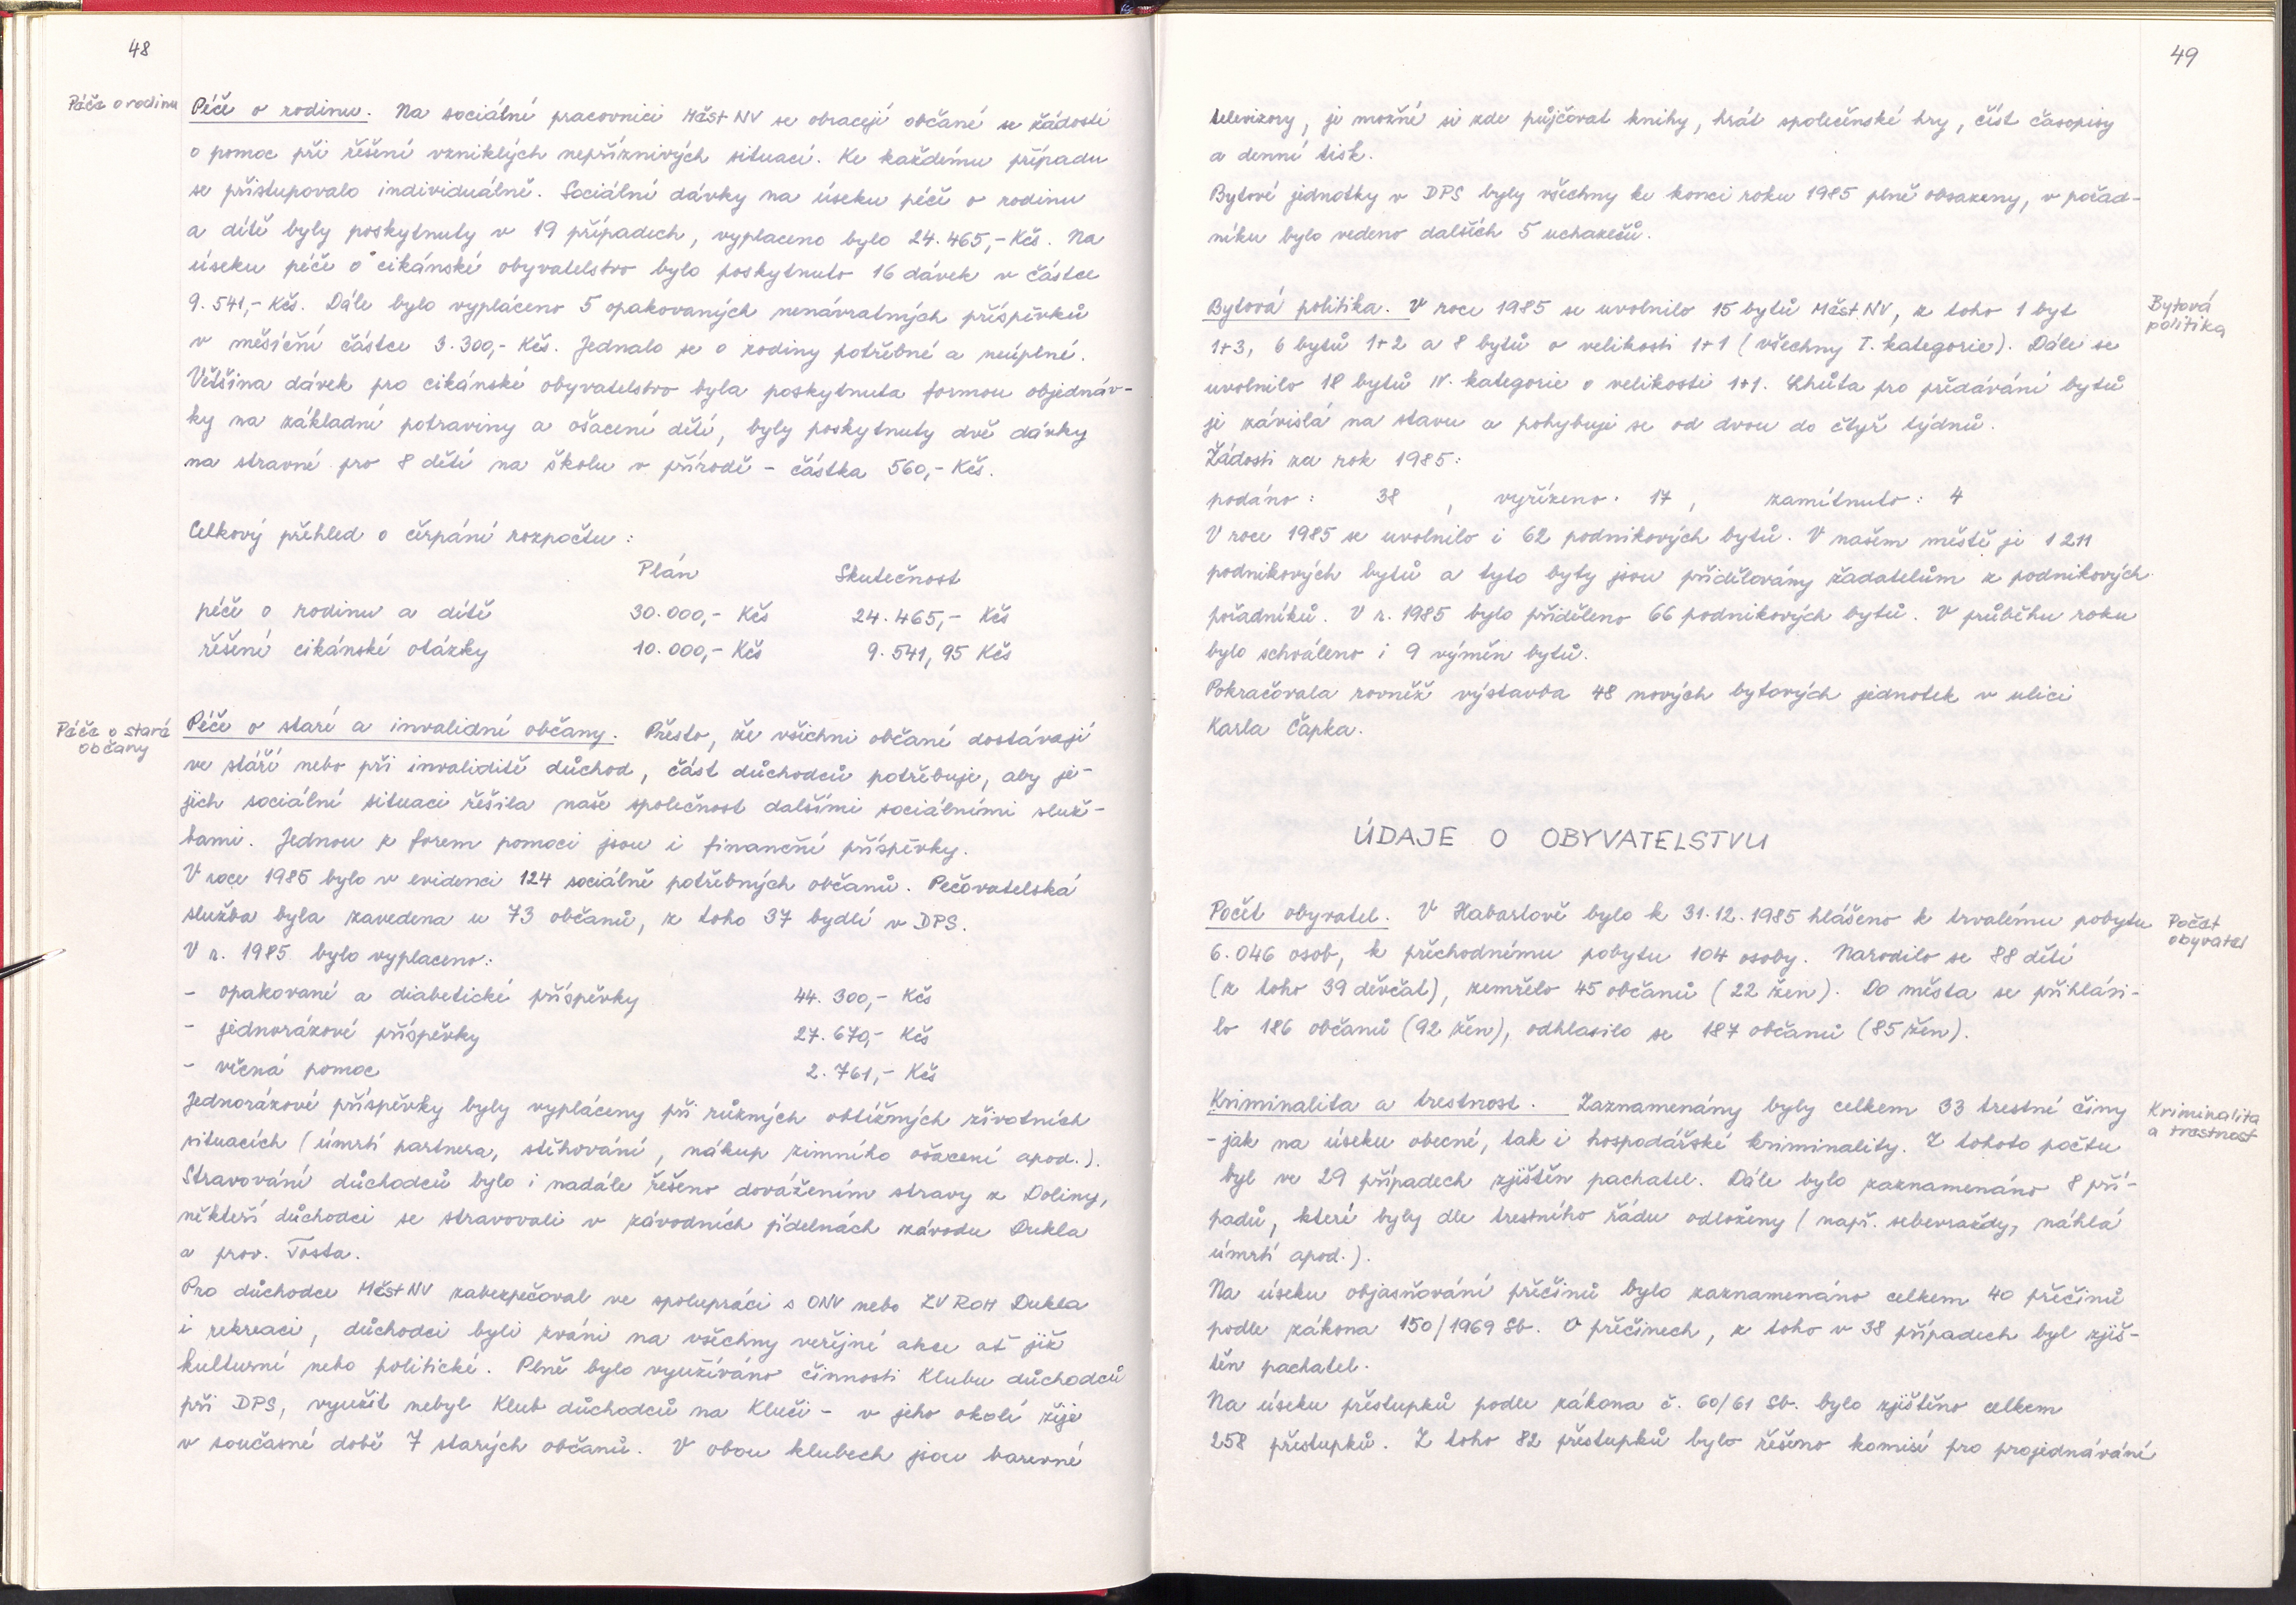 48
Péče o rodinu
Péče o rodinu. Na sociální pracovnici MěstNV se obracejí občané se žádostí
o pomoc při řešení vzniklých nepříznivých situací. Ke každému případu
se přistupovalo individuálně. Sociální dávky na úseku péče o rodinu
a dítě byly poskytnuty v 19 případech, vyplaceno bylo 24.465,- Kčs. Na
úseku péče o cikánské obyvatelstvo bylo poskytnuto 16 dávek v částce
9.541,- Kčs. Dále bylo vypláceno 5 opakovaných nenávratných příspěvků
v měsíční částce 3.300,- Kčs. Jednalo se o rodiny potřebné a neúplné.
Většina dávek pro cikánské obyvatelstvo byla poskytnuta formou objednáv-
ky na základní potraviny a ošacení dětí, byly poskytnuty dvě dávky
na stravné pro 8 dětí na školu v přírodě - částka 560,- Kčs.
Celkový přehled o čerpání rozpočtu:
Plán Skutečnost
péče o rodinu a dítě 30.000,- Kčs 24.465,- Kčs
řešení cikánské otázky 10.000,- Kčs 9.541,95 Kčs
Péče o staré
občany
Péče o staré a invalidní občany. Přesto, že všichni občané dostávají
ve stáří nebo při invaliditě důchod, část důchodců potřebuje, aby je-
jich sociální situaci řešila naše společnost dalšími sociálními služ-
bami. Jednou z forem pomoci jsou i finanční příspěvky.
V roce 1985 bylo v evidenci 124 sociálně potřebných občanů. Pečovatelská
služba byla zavedena u 73 občanů, z toho 37 bydlí v DPS.
V r. 1985 bylo vyplaceno:
- opakované a diabetické příspěvky 44.300,- Kčs
- jednorázové příspěvky 27.670,- Kčs
- věcná pomoc 2.761,- Kčs
Jednorázové příspěvky byly vypláceny při různých obtížných životních
situacích (úmrtí partnera, stěhování, nákup zimního ošacení apod.).
Stravování důchodců bylo i nadále řešeno dovážením stravy z Doliny,
někteří důchodci se stravovali v závodních jídelnách závodu Dukla
a prov. Tosta.
Pro důchodce MěstNV zabezpečoval ve spolupráci s ONV nebo ZV ROH Dukla
i rekreaci, důchodci byli zváni na všechny veřejné akce ať již
kulturní nebo politické. Plně bylo využíváno činnosti Klubu důchodců
při DPS, využit nebyl Klub důchodců na Kluči - v jeho okolí žije
v současné době 7 starých občanů. V obou klubech jsou barevné
49
televizory, je možné si zde půjčovat knihy, hrát společenské hry, číst časopisy
a denní tisk.
Bytové jednotky v DPS byly všechny ke konci roku 1985 plně obsazeny, v pořad-
níku bylo vedeno dalších 5 uchazečů.
Bytová politika. V roce 1985 se uvolnilo 15 bytů MěstNV, z toho 1 byt
1+3, 6 bytů 1+2 a 8 bytů o velikosti 1+1 (všechny I. kategorie). Dále se
uvolnilo 18 bytů IV. kategorie o velikosti 1+1. Lhůta pro předávání bytů
je závislá na stavu a pohybuje se od dvou do čtyř týdnů.
Bytová
politika
Žádosti za rok 1985:
podáno: 38 , vyřízeno: 17 , zamítnuto: 4
V roce 1985 se uvolnilo i 62 podnikových bytů. V našem městě je 1 211
podnikových bytů a tyto byty jsou přidělovány žadatelům z podnikových
pořadníků. V r. 1985 bylo přiděleno 66 podnikových bytů. V průběhu roku
bylo schváleno i 9 výměn bytů.
Pokračovala rovněž výstavba 48 nových bytových jednotek v ulici
Karla Čapka.
ÚDAJE O OBYVATELSTVU
Počet obyvatel. V Habartově bylo k 31.12.1985 hlášeno k trvalému pobytu
6.046 osob, k přechodnému pobytu 104 osoby. Narodilo se 88 dětí
(z toho 39 děvčat), zemřelo 45 občanů (22 žen). Do města se přihlási-
lo 186 občanů (92 žen), odhlásilo se 187 občanů (85 žen).
Počet
obyvatel
Kriminalita a trestnost. Zaznamenány byly celkem 33 trestné činy
- jak na úseku obecné, tak i hospodářské kriminality. Z tohoto počtu
byl ve 29 případech zjištěn pachatel. Dále bylo zaznamenáno 8 pří-
padů, které byly dle trestního řádu odloženy (např. sebevraždy, náhlá
úmrtí apod.).
Kriminalita
a trestnost
Na úseku objasňování přečinů bylo zaznamenáno celkem 40 přečinů
podle zákona 150/1969 Sb. O přečinech, z toho v 38 případech byl zjiš-
těn pachatel.
Na úseku přestupků podle zákona č. 60/61 Sb. bylo zjištěno celkem
258 přestupků. Z toho 82 přestupků bylo řešeno komisí pro projednávání